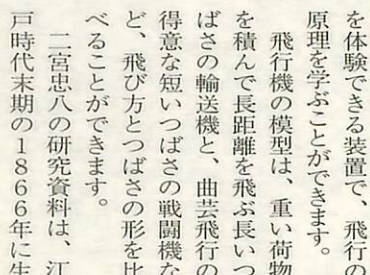 を体験できる装置で、飛行の
原理を学ぶことができます。
飛行機の模型は、重い荷物
を積んで長距離を飛ぶ長いつ
ばさの輸送機と、曲芸飛行の
得意な短いつばさの戦闘機な
ど、飛び方とつばさの形を比
べることができます。
二宮忠八の研究資料は、江
戸時代末期の1866年に生